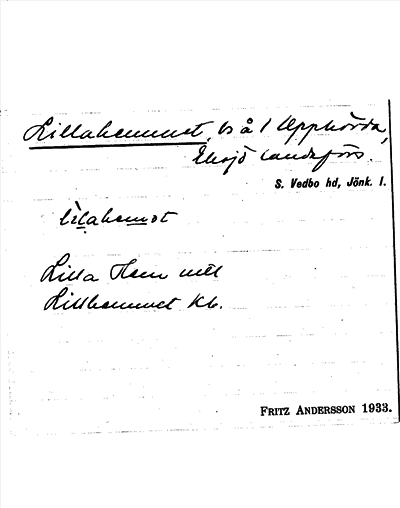 Lillahemmet, bs å 1 Upphörda,
Eksjö landsförs.
S. Vedbo hd, Jönk. l.
lillahemət
Lilla Hem mtl
Lillhemmet kb.
FRITZ ANDERSSON 1933.